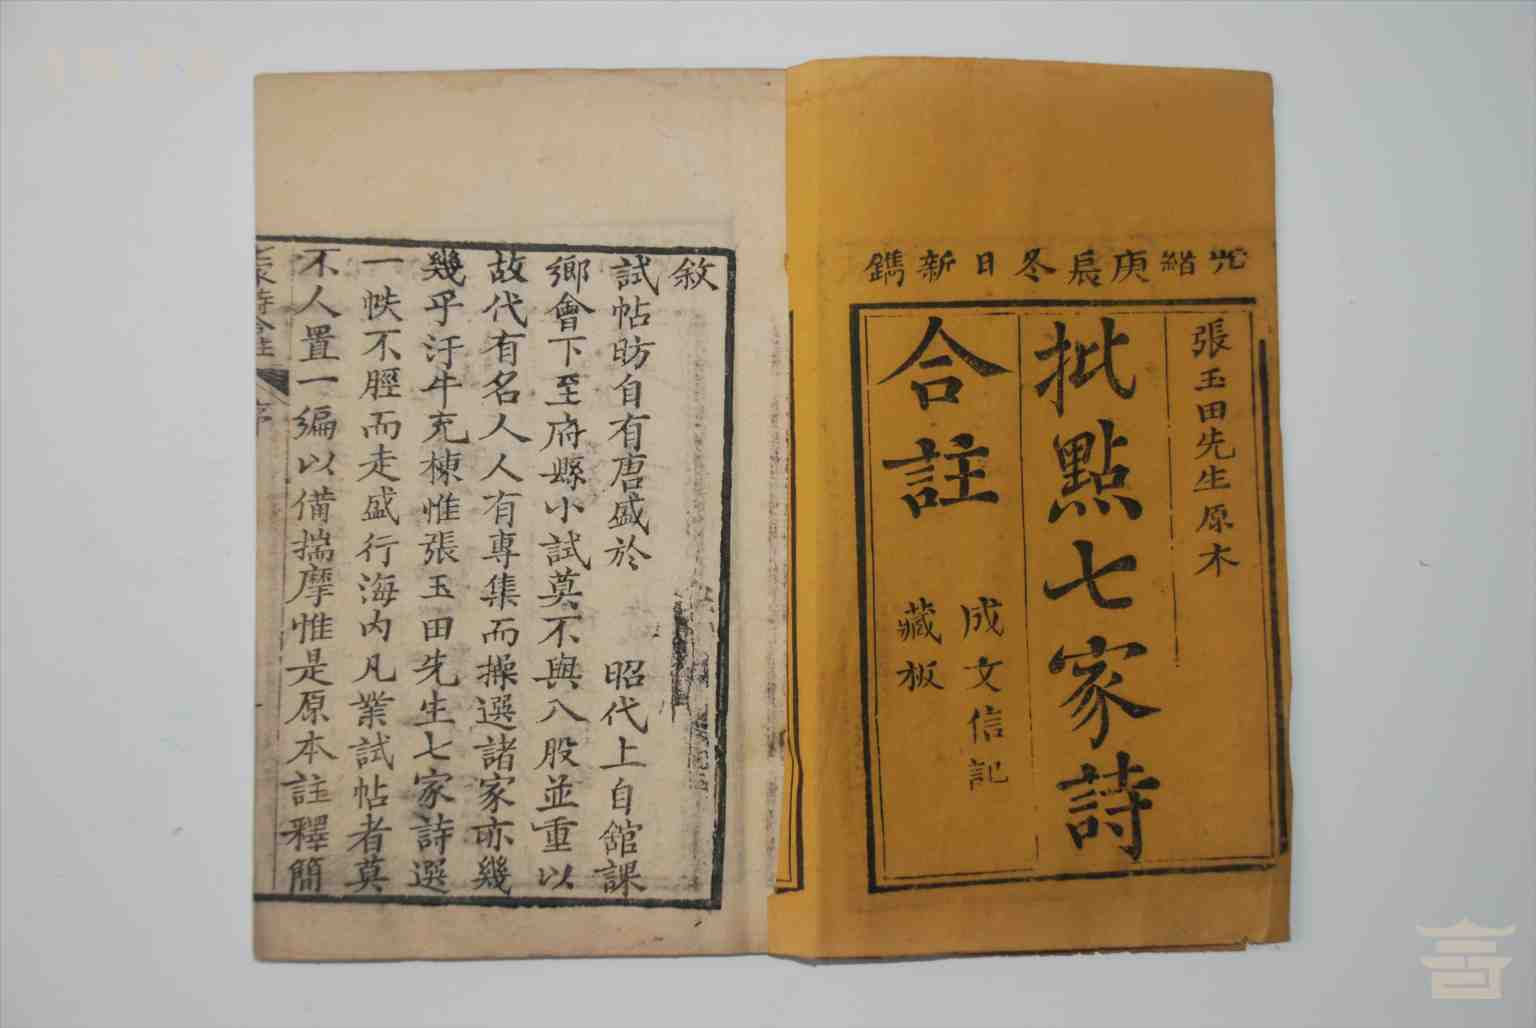 光緒庚辰冬日新鐫
張玉田先生原本
批點七家詩
合註
成文信記
藏板
敘
試帖昉自有唐盛於　昭代上自舘課
鄉會下至府縣小試莫不與八股並重以
故代有名人人有專集而操選諸家亦幾
幾乎汗牛充棟惟張玉田先生七家詩選
一帙不脛而走盛行海內凡業試帖者莫
不人置一編以備揣摩惟是原本註釋簡